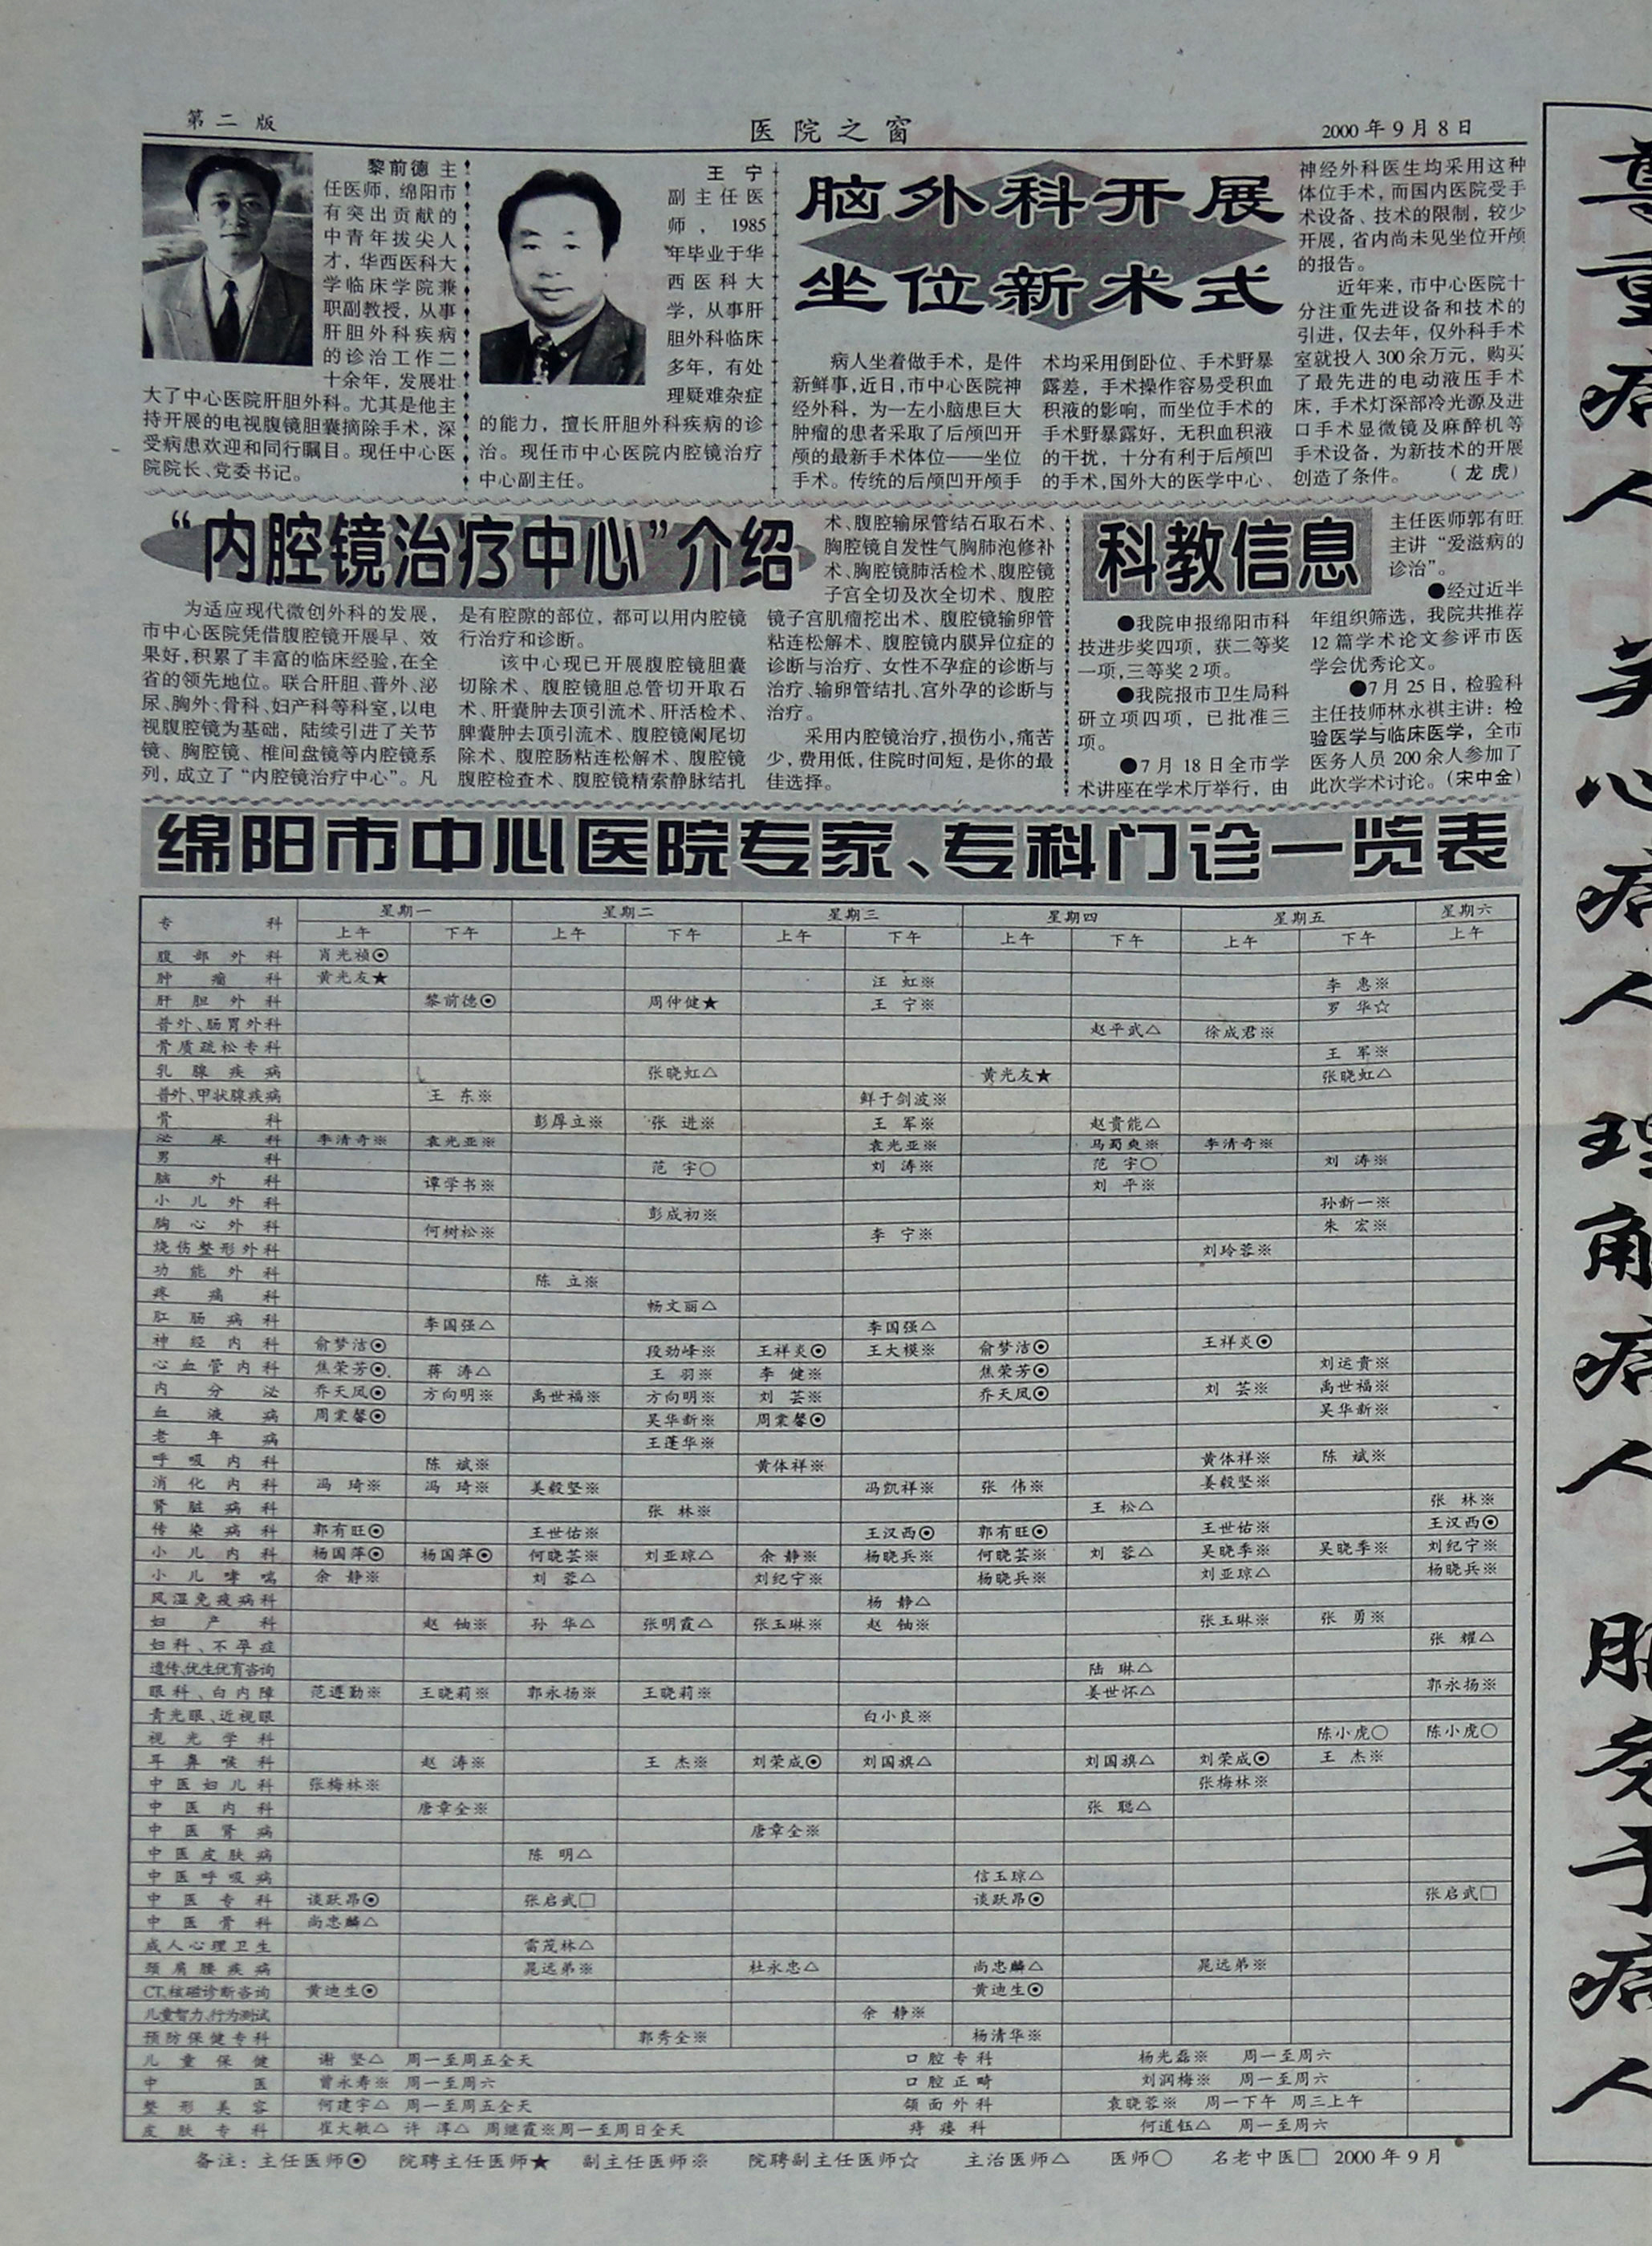 第二版
医院之窗
2000年9月8日
黎前德 主
任医师，绵阳市
有突出贡献的
中青年拔尖人
才，华西医科大
学临床学院兼
职副教授，从事
肝胆外科疾病
的诊治工作二
十余年，发展壮
大了中心医院肝胆外科。尤其是他主
持开展的电视腹镜胆囊摘除手术，深
受病患欢迎和同行瞩目。现任中心医
院院长、党委书记。
王 宁
副主任医
师，1985
年毕业于华
西医科大
学，从事肝
胆外科临床
多年，有处
理疑难杂症
的能力，擅长肝胆外科疾病的诊
治。现任市中心医院内腔镜治疗
中心副主任。
脑外科开展
坐位新术式
病人坐着做手术，是件
新鲜事，近日，市中心医院神
经外科，为一左小脑患巨大
肿瘤的患者采取了后颅凹开
颅的最新手术体位——坐位
手术。传统的后颅凹开颅手
术均采用倒卧位、手术野暴
露差，手术操作容易受积血
积液的影响，而坐位手术的
手术野暴露好，无积血积液
的干扰，十分有利于后颅凹
的手术，国外大的医学中心、
神经外科医生均采用这种
体位手术，而国内医院受手
术设备、技术的限制，较少
开展，省内尚未见坐位开颅
的报告。
近年来，市中心医院十
分注重先进设备和技术的
引进，仅去年，仅外科手术
室就投入300余万元，购买
了最先进的电动液压手术
床，手术灯深部冷光源及进
口手术显微镜及麻醉机等
手术设备，为新技术的开展
创造了条件。 （龙虎）
“内腔镜治疗中心”介绍
为适应现代微创外科的发展，
市中心医院凭借腹腔镜开展早、效
果好，积累了丰富的临床经验，在全
省的领先地位。联合肝胆、普外、泌
尿、胸外、骨科、妇产科等科室，以电
视腹腔镜为基础，陆续引进了关节
镜、胸腔镜、椎间盘镜等内腔镜系
列，成立了“内腔镜治疗中心”。凡
是有腔隙的部位，都可以用内腔镜
行治疗和诊断。
该中心现已开展腹腔镜胆囊
切除术、腹腔镜胆总管切开取石
术、肝囊肿去顶引流术、肝活检术、
脾囊肿去顶引流术、腹腔镜阑尾切
除术、腹腔肠粘连松解术、腹腔镜
腹腔检查术、腹腔镜精索静脉结扎
术、腹腔输尿管结石取石术、
胸腔镜自发性气胸肺泡修补
术、胸腔镜肺活检术、腹腔镜
子宫全切及次全切术、腹腔
镜子宫肌瘤挖出术、腹腔镜输卵管
粘连松解术、腹腔镜内膜异位症的
诊断与治疗、女性不孕症的诊断与
治疗、输卵管结扎、宫外孕的诊断与
治疗。
采用内腔镜治疗，损伤小，痛苦
少，费用低，住院时间短，是你的最
佳选择。
科教信息
●我院申报绵阳市科
技进步奖四项，获二等奖
一项，三等奖2项。
●我院报市卫生局科
研立项四项，已批准三
项。
●7月18日全市学
术讲座在学术厅举行，由
主任医师郭有旺
主讲“爱滋病的
诊治”。
●经过近半
年组织筛选，我院共推荐
12篇学术论文参评市医
学会优秀论文。
●7月25日，检验科
主任技师林永祺主讲：检
验医学与临床医学，全市
医务人员200余人参加了
此次学术讨论。（宋中金）
绵阳市中心医院专家、专科门诊一览表
专科 星期一 星期二 星期三 星期四 星期五 星期六
上午 下午 上午 下午 上午 下午 上午 下午 上午 下午 上午
腹部外科 肖光祯⊙
肿瘤科 黄光友★ 汪虹※ 李惠※
肝胆外科 黎前德⊙ 周仲健★ 王宁※ 罗华☆
普外、肠胃外科 赵平武△ 徐成君※
骨质疏松专科 王军※
乳腺疾病 张晓虹△ 黄光友★ 张晓虹△
普外、甲状腺疾病 王东※ 鲜于剑波※
骨科 彭厚立※ 张进※ 王军※ 赵贵能△
泌尿科 李清奇※ 袁光亚※ 袁光亚※ 马蜀爽※ 李清奇※
男科 范宇○ 刘涛※ 范宇○ 刘涛※
脑外科 谭学书※ 刘平※
小儿外科 彭成初※ 孙新一※
胸心外科 何树松※ 李宁※ 朱宏※
烧伤整形外科 刘玲蓉※
功能外科 陈立※
疼痛科 畅文丽△
肛肠病科 李国强△ 李国强△
神经内科 俞梦洁⊙ 段劲峰※ 王祥炎⊙ 王大模※ 俞梦洁⊙ 王祥炎⊙
心血管内科 焦荣芳⊙ 蒋涛△ 王羽※ 李健※ 焦荣芳⊙ 刘运贵※
内分泌 乔天凤⊙ 方向明※ 禹世福※ 方向明※ 刘芸※ 乔天凤⊙ 刘芸※ 禹世福※
血液病 周棠馨⊙ 吴华新※ 周棠馨⊙ 吴华新※
老年病 王蓬华※
呼吸内科 陈斌※ 黄体祥※ 黄体祥※ 陈斌※
消化内科 冯琦※ 冯琦※ 姜毅坚※ 冯凯祥※ 张伟※ 姜毅坚※
肾脏病科 张林※ 王松△ 张林※
传染病科 郭有旺⊙ 王世佑※ 王汉西⊙ 郭有旺⊙ 王世佑※ 王汉西⊙
小儿内科 杨国萍⊙ 杨国萍⊙ 何晓芸※ 刘亚琼△ 余静※ 杨晓兵※ 何晓芸※ 刘蓉△ 吴晓季※ 吴晓季※ 刘纪宁※
小儿哮喘 余静※ 刘蓉△ 刘纪宁※ 杨晓兵※ 刘亚琼△ 杨晓兵※
风湿免疫病科 杨静△
妇产科 赵铀※ 孙华△ 张明霞△ 张玉琳※ 赵铀※ 张玉琳※ 张勇※
妇科、不孕症 张耀△
遗传、优生优育咨询 陆琳△
眼科、白内障 范遵勤※ 王晓莉※ 郭永扬※ 王晓莉※ 姜世怀△ 郭永扬※
青光眼、近视眼 白小良※
视光学科 陈小虎○ 陈小虎○
耳鼻喉科 赵涛※ 王杰※ 刘荣成⊙ 刘国旗△ 刘国旗△ 刘荣成⊙ 王杰※
中医妇儿科 张梅林※ 张梅林※
中医内科 唐章全※ 张聪△
中医肾病 唐章全※
中医皮肤病 陈明△
中医呼吸病 信玉琼△
中医专科 谈跃昂⊙ 张启武□ 谈跃昂⊙ 张启武□
中医骨科 尚忠麟△
成人心理卫生 雷茂林△
颈肩腰疾病 晁远弟※ 杜永忠△ 尚忠麟△ 晁远弟※
CT、核磁诊断咨询 黄迪生⊙ 黄迪生⊙
儿童智力、行为测试 余静※
预防保健专科 郭秀全※ 杨清华※
儿童保健 谢坚△ 周一至周五全天 口腔专科 杨光磊※ 周一至周六
中医 曾永寿※ 周一至周六 口腔正畸 刘润梅※ 周一至周六
整形美容 何建宇△ 周一至周五全天 颌面外科 袁晓蓉※ 周一下午 周三上午
皮肤专科 崔大敏△ 许淳△ 周继霞※周一至周日全天 痔瘘科 何道钰△ 周一至周六
备注：主任医师⊙ 院聘主任医师★ 副主任医师※ 院聘副主任医师☆ 主治医师△ 医师○ 名老中医□ 2000年9月
尊重病人 关心病人 理解病人 服务于病人